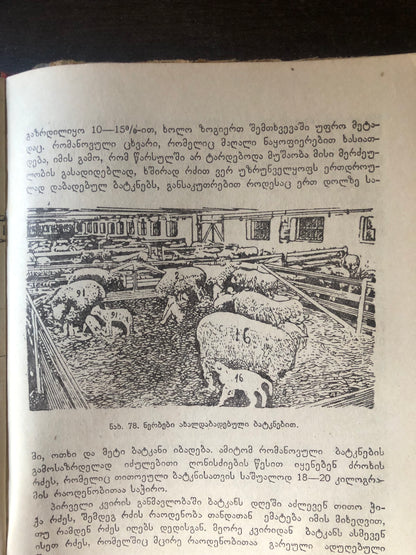 გაზრდილიყო 10—15%-ით, ხოლო ზოგიერთ შემთხვევაში უფრო მეტა-
დაც. რომანოვული ცხვარი, რომელიც მაღალი ნაყოფიერებით ხასიათ-
დება, იმის გამო, რომ წარსულში არ ტარდებოდა მუშაობა მისი მერძეუ-
ლობის გასადიდებლად, ხშირად რძით ვერ უზრუნველყოფს ერთდროუ-
ლად დაბადებულ ბატკნებს, განსაკუთრებით როდესაც ერთ დოლზე სა-
91
91
16
16
ნახ. 78. ნერბები ახალდაბადებული ბატკნებით.
მი, ოთხი და მეტი ბატკანი იბადება. ამიტომ რომანოვული ბატკნების
გამოსაზრდელად იძულებითი ღონისძიების წესით იყენებენ ძროხის
რძეს, რომელიც თითოეული ბატკნისათვის საშუალოდ 18—20 კილოგრა-
მის რაოდენობითაა საჭირო.
პირველი კვირის განმავლობაში ბატკანს დღეში აძლევენ თითო ჭი-
ქა რძეს, შემდეგ რძის რაოდენობა თანდათან ემატება იმის მიხედვით,
თუ რამდენ რძეს იღებს დედისგან. მეორე კვირიდან ბატკანს ასმევენ
ისეთ რძეს, რომელშიც მცირე რაოდენობითაა გარეული ადუღებული